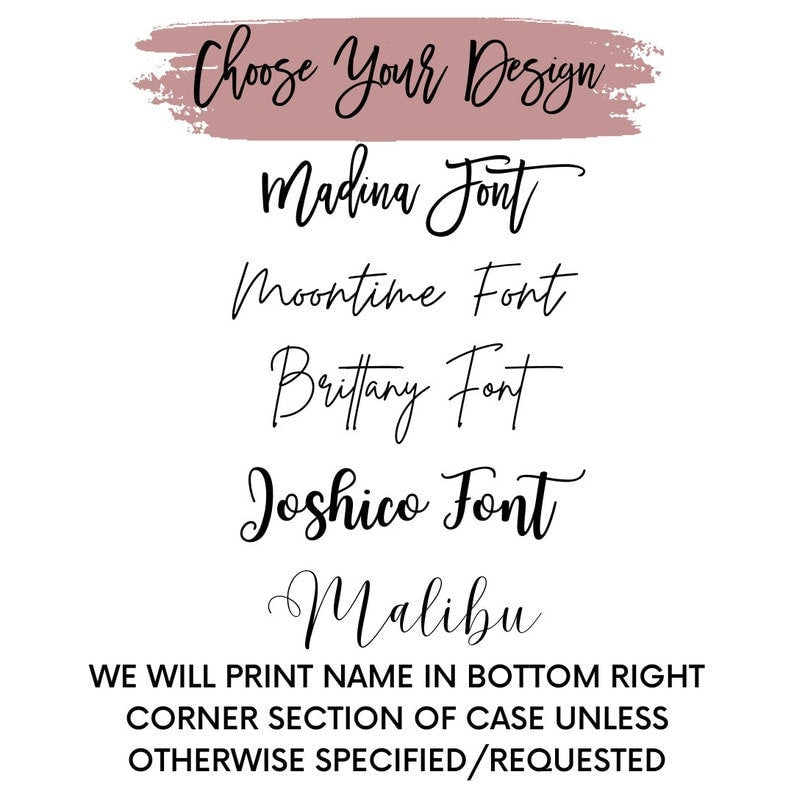 Choose Your Design
Madina Font
Moontime Font
Brittany Font
Joshico Font
Malibu
WE WILL PRINT NAME IN BOTTOM RIGHT
CORNER SECTION OF CASE UNLESS
OTHERWISE SPECIFIED/REQUESTED